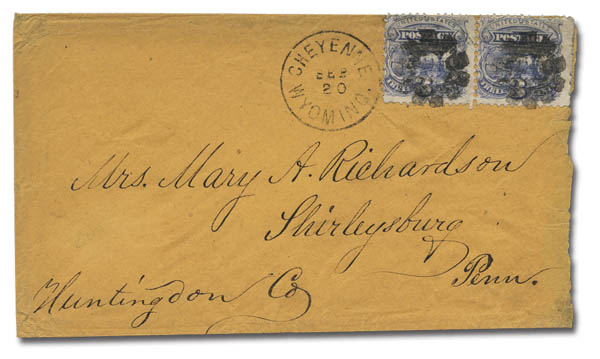 UNITED STATES UNITED STATES
POSTAGE POSTAGE
3 3
CHEYENNE
FEB
20
WYOMING.
Mrs. Mary A. Richardson
Shirleysburg
Penn.
Huntingdon Co